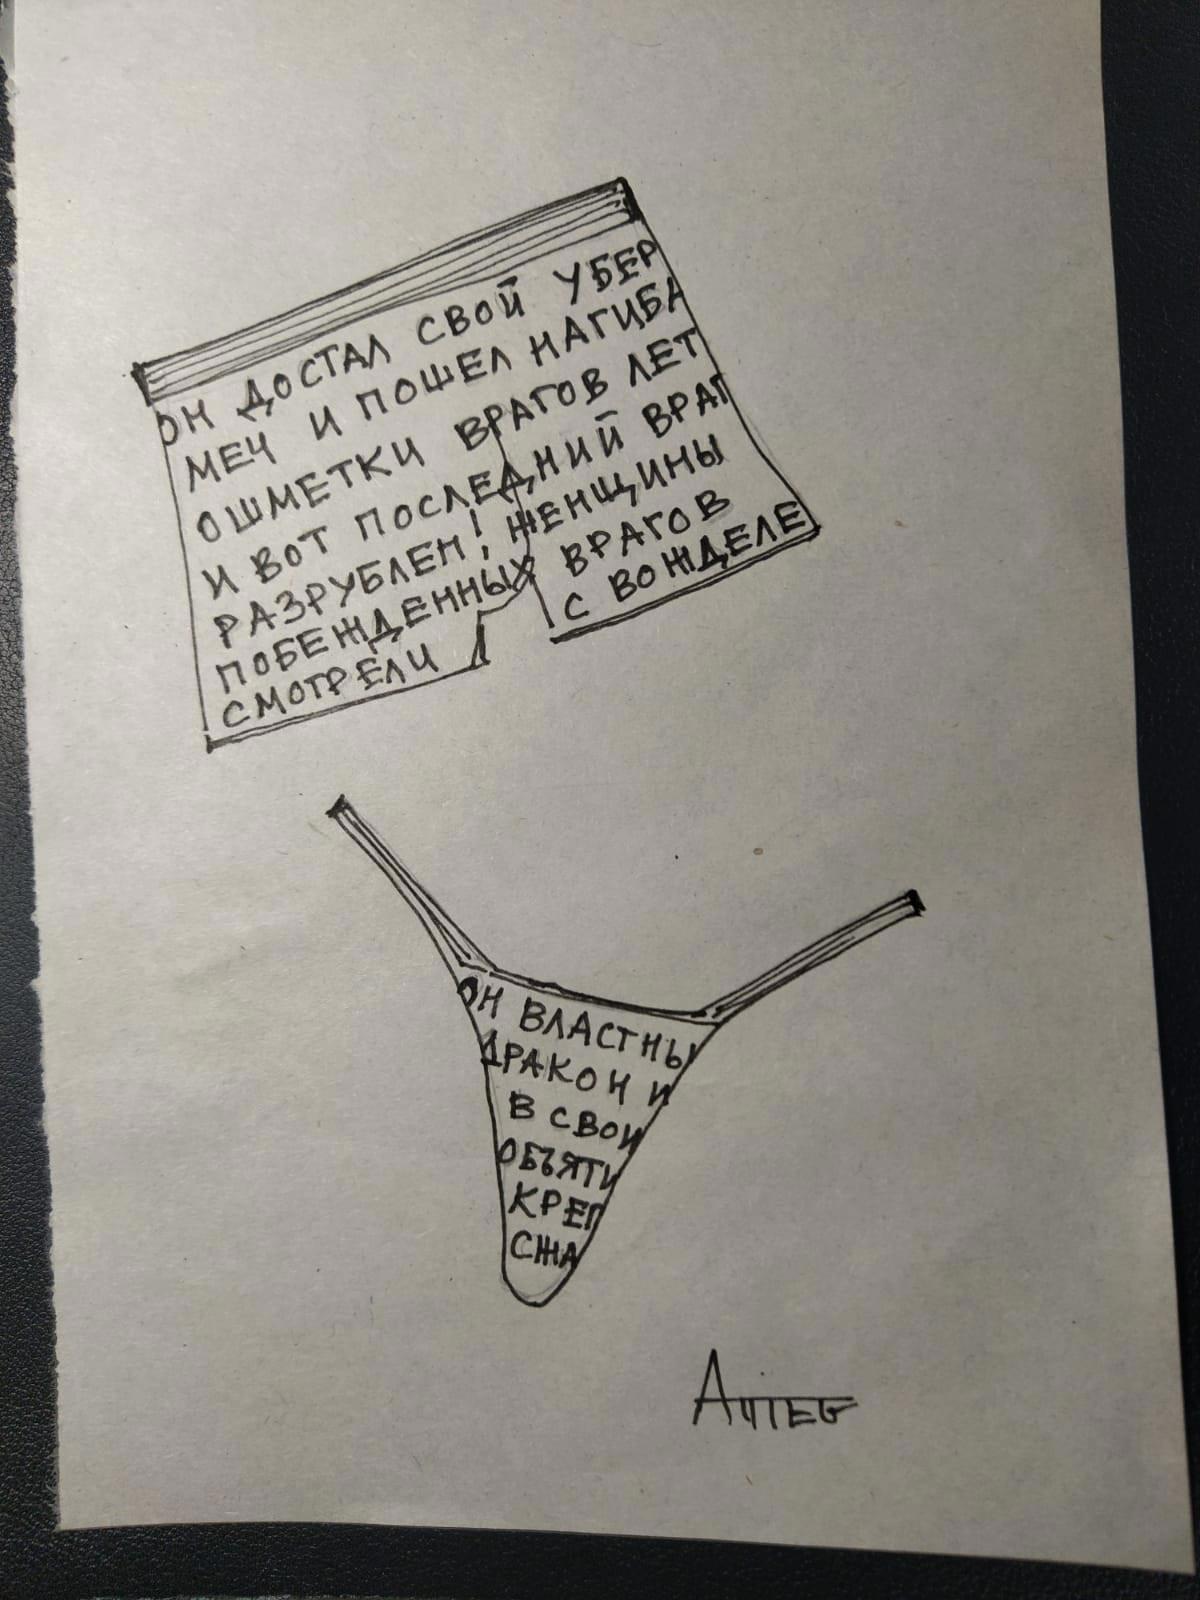 ОН ДОСТАЛ СВОЙ УБЕР
МЕЧ И ПОШЕЛ НАГИБА
ОШМЕТКИ ВРАГОВ ЛЕТ
И ВОТ ПОСЛЕДНИЙ ВРАГ
РАЗРУБЛЕН! ЖЕНЩИНЫ
ПОБЕЖДЕННЫХ ВРАГОВ
СМОТРЕЛИ С ВОЖДЕЛЕ
ОН ВЛАСТНЫ
ДРАКОН И
В СВОИ
ОБЪЯТИ
КРЕП
СЖА